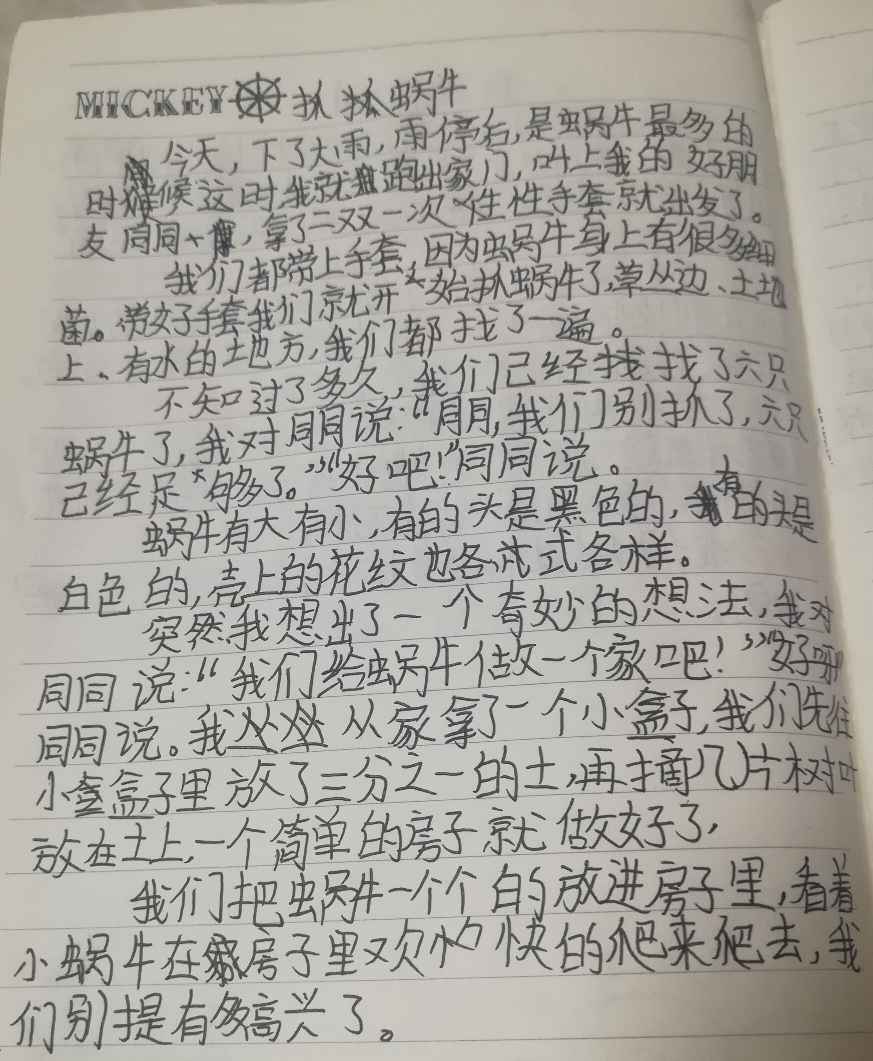 MICKEY 抓蜗牛
今天,下了大雨,雨停后,是蜗牛最多的
时候这时,我就跑出家门,叫上我的好朋
友同同,拿了二双一次性手套就出发了。
我们都带上手套,因为蜗牛身上有很多细
菌。带好手套我们就开始抓蜗牛了,草丛边、土地
上、有水的土地方,我们都找了一遍。
不知过了多久,我们已经找找了六只
蜗牛了,我对同同说:“同同,我们别抓了,六只
已经足够了。”“好吧!”同同说。
蜗牛有大有小,有的头是黑色的,有的头是
白色的,壳上的花纹也各式各样。
突然我想出了一个奇妙的想法,我对
同同说:“我们给蜗牛做一个家吧!”“好呀
同同说。我从家拿了一个小盒子,我们先往
小盒子里放了三分之一的土,再摘几片树叶
放在土上,一个简单的房子就做好了,
我们把蜗牛一个个的放进房子里,看着
小蜗牛在房子里欢快的爬来爬去,我
们别提有多高兴了。